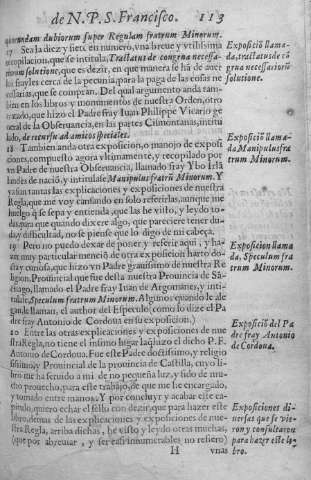 de N. P. S. Francisco. 113
quorundam dubiorum super Regulam fratrum Minorum.
17 Sea la diez y siete en numero, vna breue y vtilissima
recopilacion, que se intitula, Tractatus de congrua necessa-
riorum solutione, que es dezir, en que manera se há de auer
los frayles cerca de la pecunia, para la paga de las cosas ne
cessarias, que se compran. Del qual argumento anda tam-
bien en los libros y monumentos de nuestra Orden, otro
tratado, que hizo el Padre fray Iuan Philippe Vicario ge
neral de la Obseruancia, en las partes Cismontanas, intitu
lado, de recursu ad amicos speciales.
18 Tambien anda otra exposicion, o manojo de exposi
ciones, compuesto agora vltimamente, y recopilado por
vn Padre de nuestra Obseruancia, llamado fray Ybo Irlã
landes de nació, y intitulase Manipulus fratrũ Minorum. Y
van tantas las explicaciones y exposiciones de nuestra
Regla, que me voy cansando en solo referirlas, aunque me
huelgo q̃ se sepa y entienda, que las he visto, y leydo to-
das, para que quando dixere algo, que pareciere tener du-
da y dificultad, no se piense que lo digo de mi cabeça.
19 Pero no puedo dexar de poner y referir aqui, y ha-
zer muy particular menció de otra exposicion harto do-
cta y curiosa, que hizo vn Padre grauissimo de nuestra Re
ligion, Prouincial que fue desta nuestra Prouincia de Sã-
tiago, llamado el Padre fray Iuan de Argomanes, y intí-
tulase, Speculum fratrum Minorum. Algunos quando le ale
gan, le llaman, el author del Especulo, (como lo dize el Pa
dre fray Antonio de Cordoua en su exposicion.)
20 Entre las otras explicaciones y exposiciones de nue
stra Regla, no tiene el infimo lugar la q̃ hizo el dicho P. F.
Antonio de Cordoua. Fue este Padre doctissimo, y religio
sissimo, y Prouincial de la prouincia de Castilla, cuyo li-
bro me ha seruido a mi de no pequeña luz, y sido de mu-
cho prouecho, para este trabajo, de que me he encargado,
y tomado entre manos. Y por concluyr y acabar este ca-
pitulo, quiero echar el sello con dezir, que para hazer este
libro, demas de las explicaciones y exposiciones de nue-
stra Regla, arriba dichas, he visto y leydo otras muchas,
(que por abreuiar, y ser casi innumerables no refiero)
H vnas
Exposició llama-
da, tractatus de có
grua necessarioru
solutione.
Exposició llama-
da Manipulus fra
trum Minorum.
Exposicion llama
da, Speculum fra
trum Minorum.
Exposició del Pa
dre fray Antonio
de Cordoua.
Exposiciones di-
uersas que se vie-
ron y consultaron
para hazer este li-
bro.